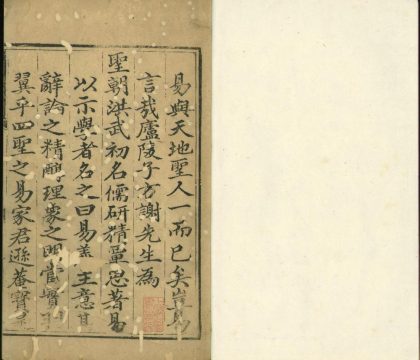 易與天地聖人一而已矣豈易
言哉廬陵子方謝先生為
聖朝洪武初名儒研精覃思著易
以示學者名之曰易義主意其
辭論之精醇理象之明當實
翼乎四聖之易家君遜菴寶